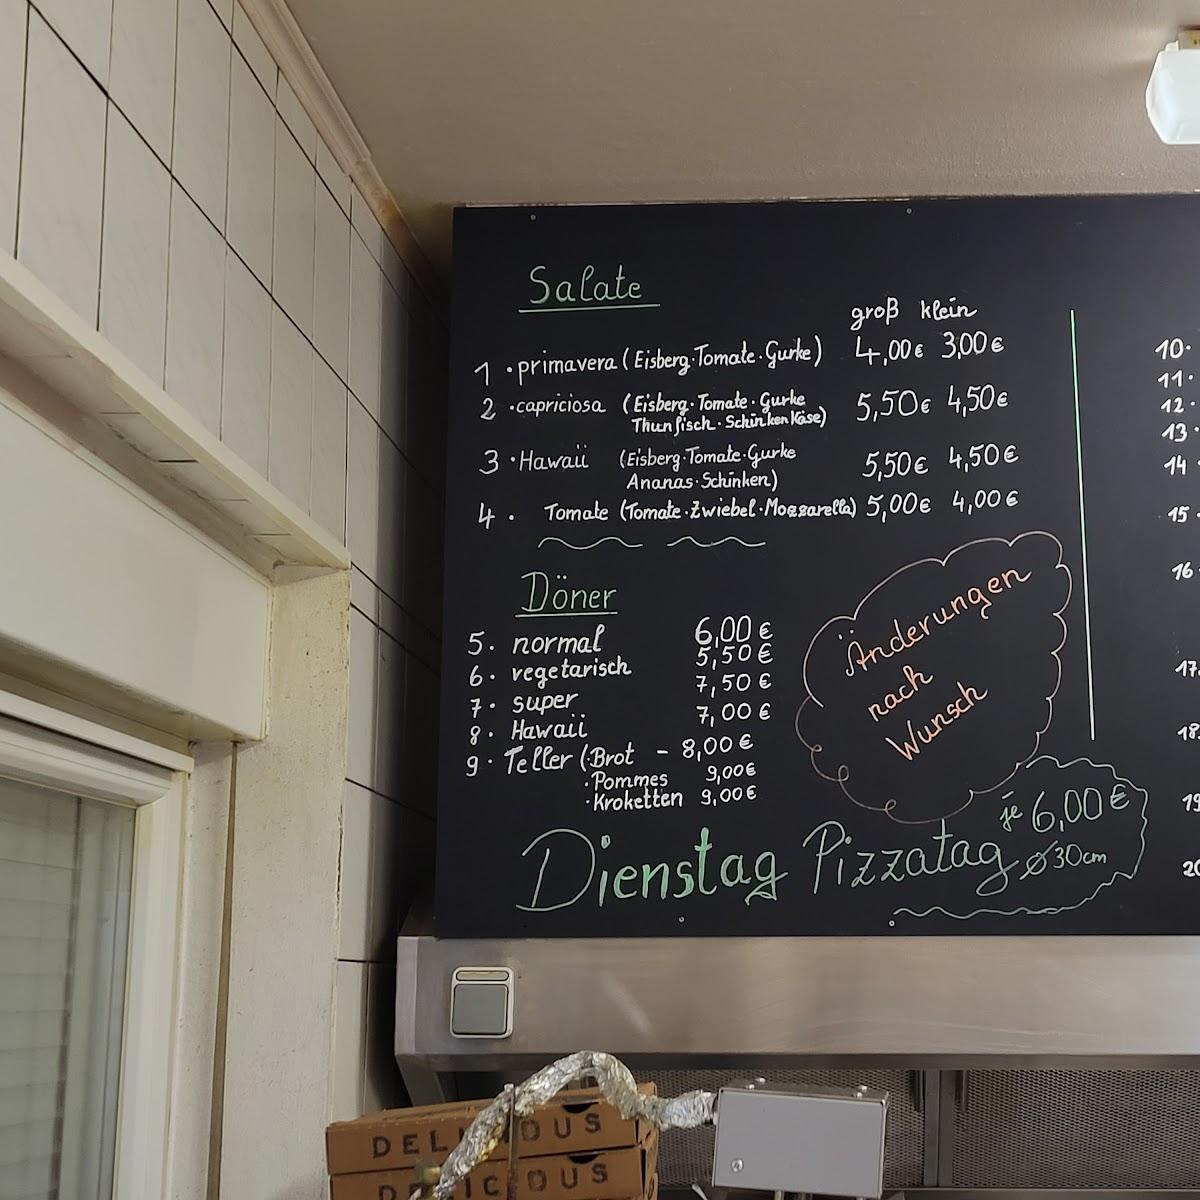 Salate
groß klein
1 · primavera (Eisberg · Tomate · Gurke) 4,00€ 3,00€
2 · capriciosa (Eisberg · Tomate · Gurke 5,50€ 4,50€
Thunfisch · Schinken Käse)
3 · Hawaii (Eisberg · Tomate · Gurke 5,50€ 4,50€
Ananas · Schinken)
4 · Tomate (Tomate · Zwiebel · Mozzarella) 5,00€ 4,00€
Döner
5. normal 6,00€
6. vegetarisch 5,50€
7. super 7,50€
8. Hawaii 7,00€
9. Teller (· Brot - 8,00€
· Pommes 9,00€
· Kroketten 9,00€
Änderungen
nach
Wunsch
Dienstag Pizzatag je 6,00€
ø30cm
10.
11.
12.
13.
14
15.
16.
17.
18.
19
20
DELICIOUS
DELICIOUS